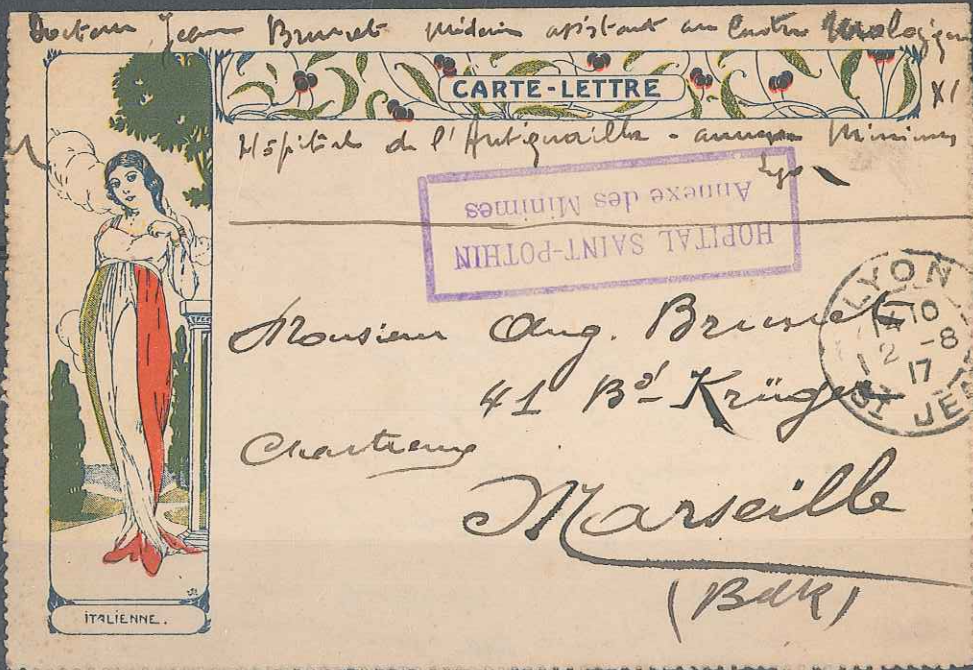 Docteur Jean Brunet médecin assistant au Centre Urologique
CARTE-LETTRE
XI
Hôpital de l'Antiquaille - annexe Minimes
Lyon
HOPITAL SAINT-POTHIN
Annexe des Minimes
LYON
14 10
2 -8
17
ST JEAN
Monsieur Aug. Brunet
41 Bd Krüger
Chartreux
Marseille
(BdR)
ITALIENNE.